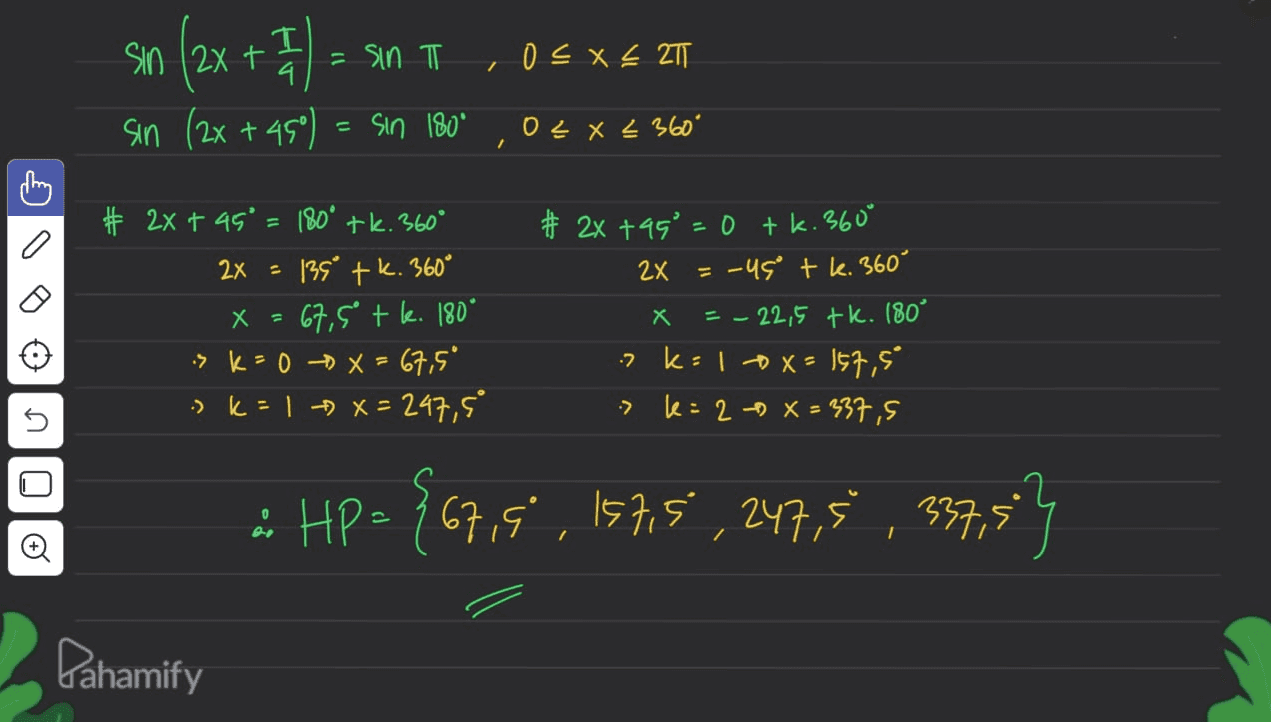 sin (2x + π/4) = sin π , 0 ≤ x ≤ 2π
sin (2x + 45°) = sin 180° , 0 ≤ x ≤ 360°
# 2x + 45° = 180° + k.360°
2x = 135° + k.360°
x = 67,5° + k. 180°
∴ k = 0 → x = 67,5°
∴ k = 1 → x = 247,5°
# 2x + 45° = 0 + k.360°
2x = -45° + k.360°
x = -22,5 + k. 180°
∴ k = 1 → x = 157,5°
∴ k = 2 → x = 337,5
∴ HP = {67,5°, 157,5°, 247,5°, 337,5°}
Pahamify